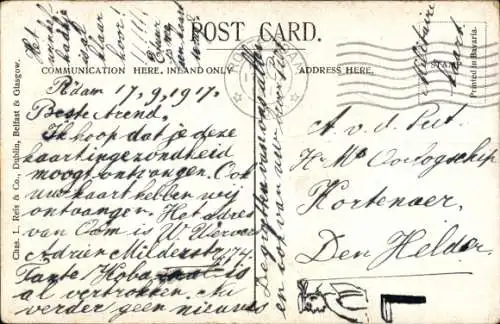 POST CARD.
COMMUNICATION HERE, INLAND ONLY
ADDRESS HERE.
Printed in Bavaria.
Chas. L. Reis & Co., Dublin, Belfast & Glasgow.
Militaire
Het
is
klaar
hoor!
!!!!!
R'dam 17.9.1917.
Beste Arend,
Ik hoop dat je deze
kaart in gezondheid
moogt ontvangen. Ook
uw kaart hebben wij
ontvangen. Het adres
van Oom is W.
Adrien Milderstr 74.
Tante is
al vertrokken. Nu
verder geen nieuws
en ook van uw
A. v. d. Put
H. Ms Oorlogschip
Kortenaer,
Den Helder